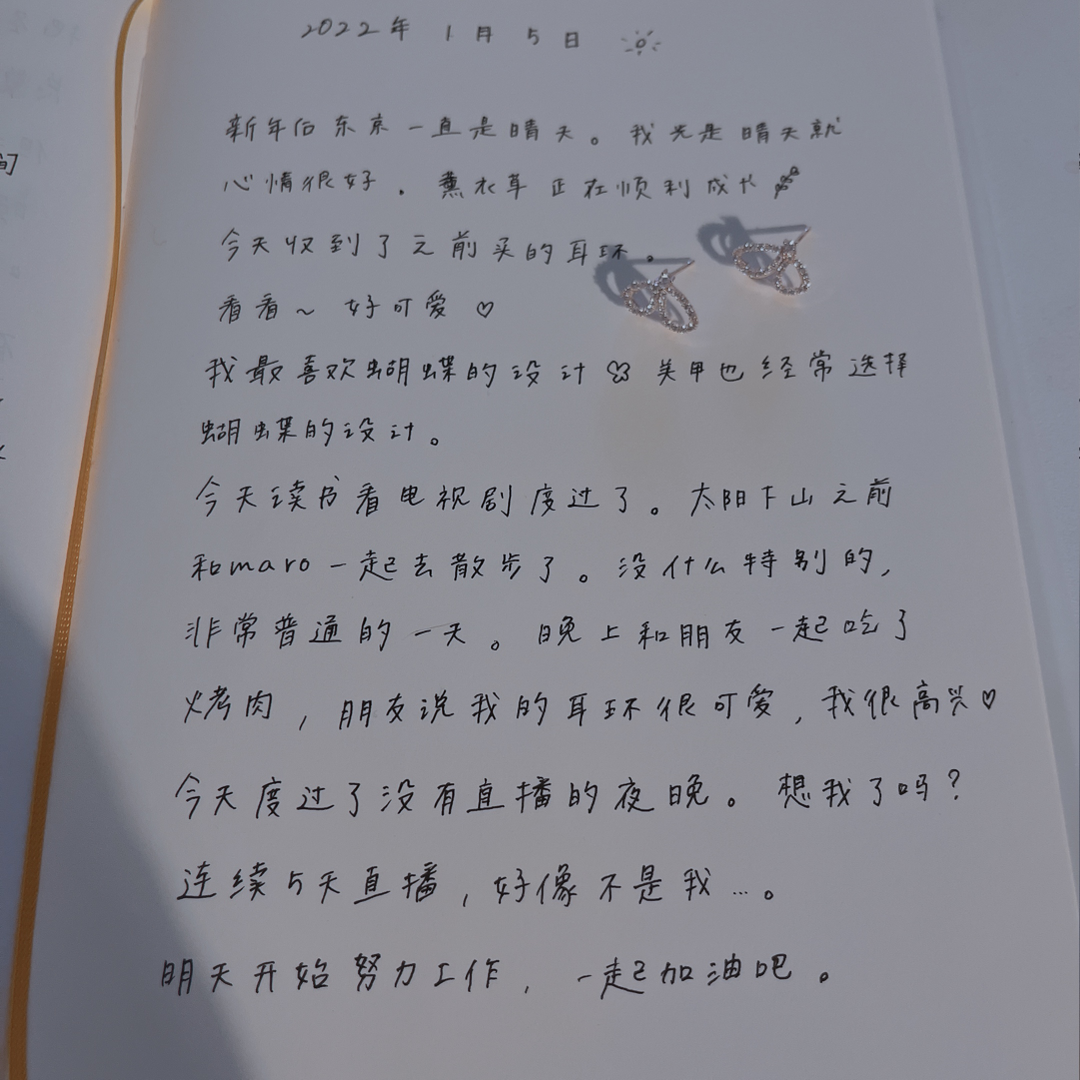 2022年 1月 5日
新年后东京一直是晴天。我光是晴天就
心情很好. 薰衣草正在顺利成长
今天收到了之前买的耳环。
看看~ 好可爱 ♡
我最喜欢蝴蝶的设计 美甲也经常选择
蝴蝶的设计。
今天读书看电视剧度过了。太阳下山之前
和maro一起去散步了。没什么特别的,
非常普通的一天。晚上和朋友一起吃了
烤肉,朋友说我的耳环很可爱,我很高兴♡
今天度过了没有直播的夜晚。想我了吗?
连续5天直播,好像不是我…。
明天开始努力工作,一起加油吧。